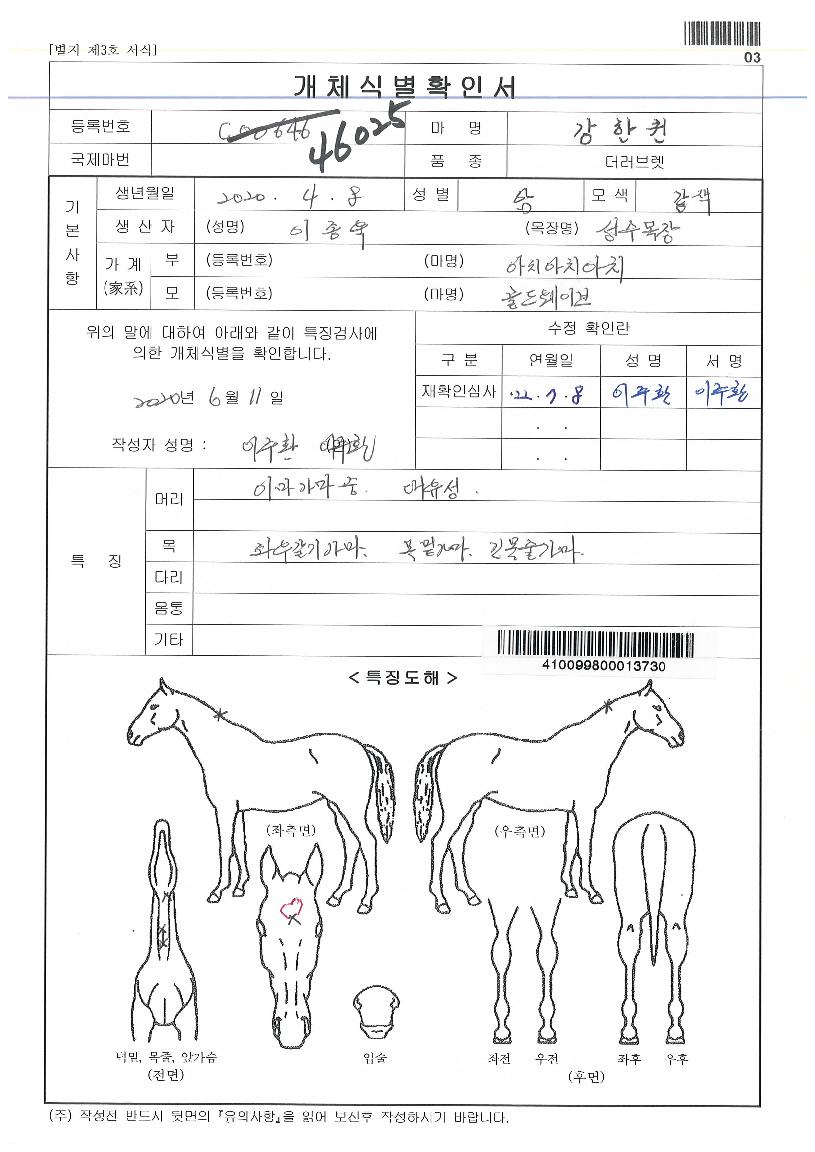 [별지 제3호 서식]
03
개체식별확인서
등록번호 46025 마 명 강한퀸
국제마번 품 종 더러브렛
기본사항
생년월일 2020. 4. 8 성별 암 모색 갈색
생산자 (성명) 이종욱 (목장명) 성수목장
가계(家系) 부 (등록번호) (마명) 아치아치아치
모 (등록번호) (마명) 골드웨이브
위의 말에 대하여 아래와 같이 특징검사에
의한 개체식별을 확인합니다.
2020년 6월 11일
작성자 성명 : 이주환 이주환
수정 확인란
구분 연월일 성명 서명
재확인심사 '22. 7. 8 이주환 이주환
. .
. .
특징
머리 이마가마중. 마유성.
목 좌우갈기가마. 목밑가마. 긴목줄가마.
다리
몸통
기타
410099800013730
< 특징도해 >
(좌측면) (우측면)
턱밑, 목줄, 앞가슴 입술 좌전 우전 좌후 우후
(전면) (후면)
(주) 작성전 반드시 뒷면의 『유의사항』을 읽어 보신후 작성하시기 바랍니다.